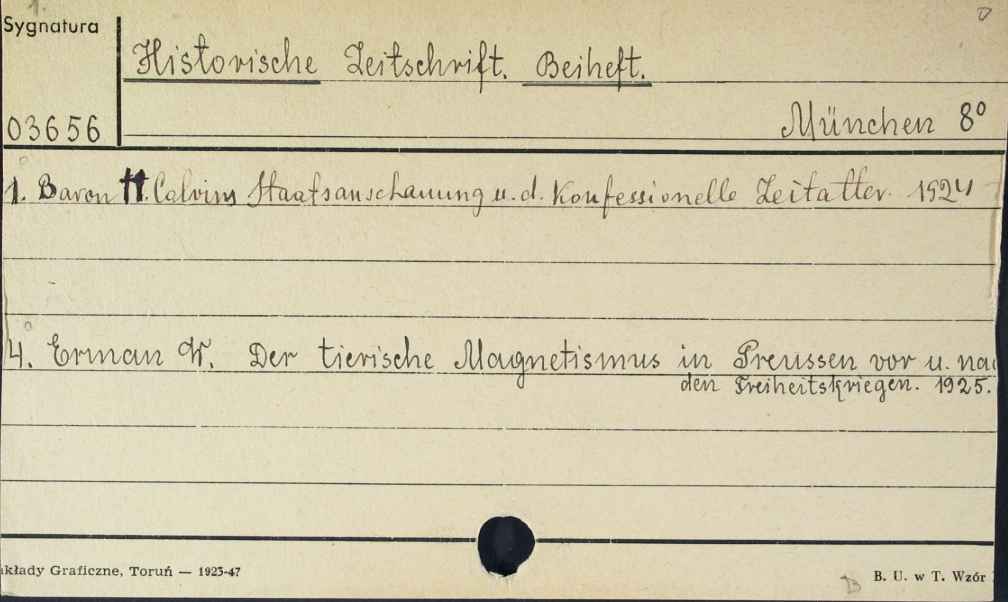 Sygnatura
Historische Zeitschrift. Beiheft.
03656
München 8°
1. Baron H. Calvins Staatsanschauung u. d. Konfessionelle Zeitalter. 1924
4. Erman W. Der tierische Magnetismus in Preussen vor u. nac
den Freiheitskriegen. 1925.
kłady Graficzne, Toruń — 1923-47
B. U. w T. Wzór